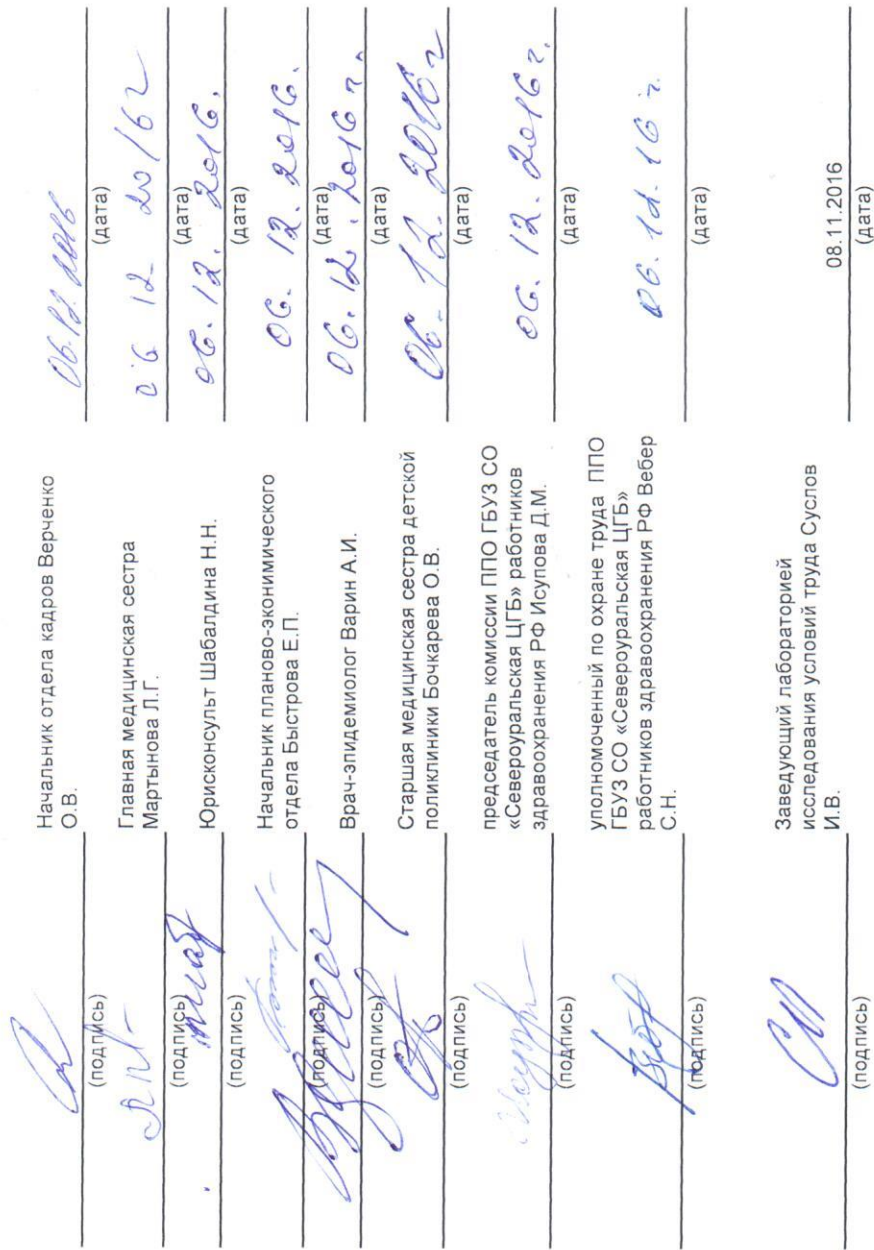 Начальник отдела кадров Верченко
О.В.
06.12.2016
(подпись)
(дата)
Главная медицинская сестра
Мартынова Л.Г.
06 12 2016г
(подпись)
(дата)
Юрисконсульт Шабалдина Н.Н.
06.12.2016.
(подпись)
(дата)
Начальник планово-эконимического
отдела Быстрова Е.П.
06.12.2016.
(подпись)
(дата)
Врач-эпидемиолог Варин А.И.
06.12.2016г.
(подпись)
(дата)
Старшая медицинская сестра детской
поликлиники Бочкарева О.В.
06.12.2016г
(подпись)
(дата)
председатель комиссии ППО ГБУЗ СО
«Североуральская ЦГБ» работников
здравоохранения РФ Исупова Д.М.
06.12.2016г.
(подпись)
(дата)
уполномоченный по охране труда ППО
ГБУЗ СО «Североуральская ЦГБ»
работников здравоохранения РФ Вебер
С.Н.
06.12.16г.
(подпись)
(дата)
Заведующий лабораторией
исследования условий труда Суслов
И.В.
08.11.2016
(подпись)
(дата)